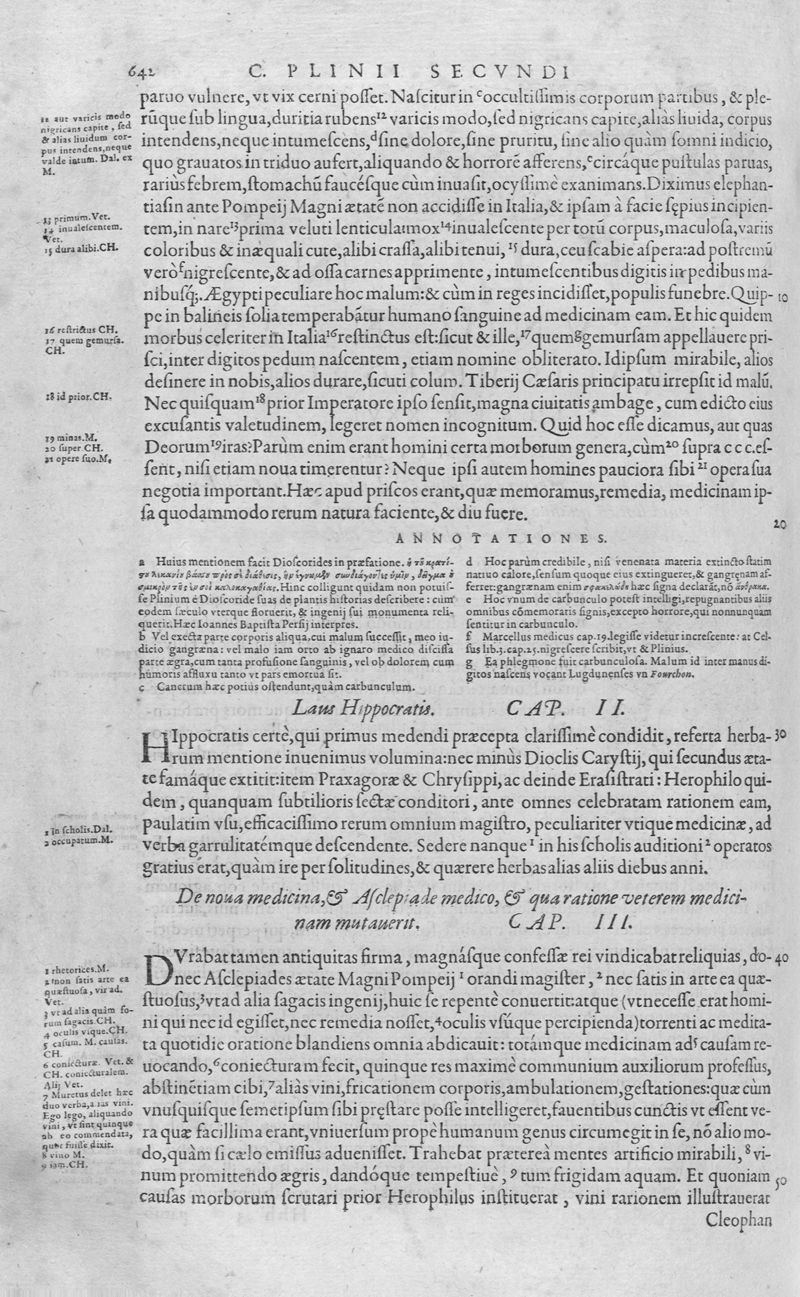 642
C. PLINII SECVNDI
paruo vulnere, vt vix cerni posset. Nascitur in ᶜoccultissimis corporum partibus, & ple-
rūque sub lingua, duritia rubens¹² varicis modo, sed nigricans capite, aliàs liuida, corpus
intendens, neque intumescens, ᵈsine dolore, sine pruritu, sine alio quàm somni indicio,
quo grauatos in triduo aufert, aliquando & horrorē afferens, ᵉcircáque pustulas paruas,
rariùs febrem, stomachū faucésque cùm inuasit, ocyssimè exanimans. Diximus elephan-
tiasin ante Pompeij Magni ætatē non accidisse in Italia, & ipsam à facie sępius incipien-
tem, in nare¹³ prima veluti lenticula: mox¹⁴ inualescente per totū corpus, maculosa, variis
coloribus & inæquali cute, alibi crassa, alibi tenui, ¹⁵ dura, ceu scabie aspera: ad postremū
verò ᶠnigrescente, & ad ossa carnes apprimente, intumescentibus digitis in pedibus ma-
nibusq́;. Ægypti peculiare hoc malum: & cùm in reges incidisset, populis funebre. Quip- 10
pe in balineis solia temperabātur humano sanguine ad medicinam eam. Et hic quidem
morbus celeriter in Italia¹⁶ restinctus est: sicut & ille, ¹⁷quem ᵍgemursam appellauere pri-
sci, inter digitos pedum nascentem, etiam nomine obliterato. Id ipsum mirabile, alios
desinere in nobis, alios durare, sicuti colum. Tiberij Cæsaris principatu irrepsit id malū.
Nec quisquam¹⁸ prior Imperatore ipso sensit, magna ciuitatis ambage, cum edicto eius
excusantis valetudinem, legeret nomen incognitum. Quid hoc esse dicamus, aut quas
Deorum¹⁹iras? Parùm enim erant homini certa morborum genera, cùm²⁰ supra ccc. es-
sent, nisi etiam noua timerentur? Neque ipsi autem homines pauciora sibi ²¹ opera sua
negotia important. Hæc apud priscos erant, quæ memoramus, remedia, medicinam ip-
sa quodammodo rerum natura faciente, & diu fuere.
20
12 aut varicis modo
nigricans capite, sed
& alias liuidum cor-
pus intendens, neque
valde intum. Dal. ex
M.
13 primum. Vet.
14 inualescentem.
Vet.
15 dura alibi. CH.
16 restrictus CH.
17 quem gemursa.
CH.
18 id prior. CH.
19 minas. M.
20 super CH.
21 opere suo. M.
ANNOTATIONES.
a Huius mentionem facit Dioscorides in præfatione.
Hinc colligunt quidam non potuis-
se Plinium è Dioscoride suas de plantis historias describere: cùm
eodem sæculo vterque floruerit, & ingenij sui monumenta reli-
querit. Hæc Ioannes Baptista Persij interpres.
b Vel execta parte corporis aliqua, cui malum successit, meo iu-
dicio gangræna: vel malo iam orto ab ignaro medico discissa
parte ægra, cum tanta profusione sanguinis, vel ob dolorem cum
humoris affluxu tanto vt pars emortua sit.
c Cancrum hæc potiùs ostendunt, quàm carbunculum.
d Hoc parùm credibile, nisi venenata materia extincto statim
natiuo calore, sensum quoque eius extingueret, & gangręnam af-
ferret: gangrænam enim haec signa declarāt, nō
e Hoc vnum de carbunculo potest intelligi, repugnantibus aliis
omnibus cōmemoratis signis, excepto horrore, qui nonnunquam
sentitur in carbunculo.
f Marcellus medicus cap. 19. legisse videtur increscente: at Cel-
sus lib. 5. cap. 25. nigrescere scribit, vt & Plinius.
g Ea phlegmone fuit carbunculosa. Malum id inter manus di-
gitos nascens vocant Lugdunenses vn Fourchon.
Laus Hippocratis. CAP. II.
HIppocratis certè, qui primus medendi præcepta clarissimè condidit, referta herba- 30
rum mentione inuenimus volumina: nec minùs Dioclis Carystij, qui secundus æta-
te famáque extitit: item Praxagoræ & Chrysippi, ac deinde Erasistrati: Herophilo qui-
dem, quanquam subtilioris sectæ conditori, ante omnes celebratam rationem eam,
paulatim vsu, efficacissimo rerum omnium magistro, peculiariter vtique medicinæ, ad
verba garrulitatémque descendente. Sedere nanque¹ in his scholis auditioni² operatos
gratius erat, quàm ire per solitudines, & quærere herbas alias aliis diebus anni.
1 in scholis. Dal.
2 occupatum. M.
De noua medicina, & Asclepiade medico, & qua ratione veterem medici-
nam mutauerit. CAP. III.
DVrabat tamen antiquitas firma, magnásque confessæ rei vindicabat reliquias, do- 40
nec Asclepiades ætate Magni Pompeij ¹ orandi magister, ² nec satis in arte ea quæ-
stuosus, ³vt ad alia sagacis ingenij, huic se repentè conuertit: atque (vt necesse erat homi-
ni qui nec id egisset, nec remedia nosset, ⁴oculis vsúque percipienda) torrenti ac medita-
ta quotidie oratione blandiens omnia abdicauit: totámque medicinam ad⁵ causam re-
uocando, ⁶coniecturam fecit, quinque res maximè communium auxiliorum professus,
abstinētiam cibi, ⁷aliàs vini, fricationem corporis, ambulationem, gestationes: quæ cùm
vnusquisque semetipsum sibi pręstare posse intelligeret, fauentibus cunctis vt essent ve-
ra quæ facillima erant, vniuersum propè humanum genus circumegit in se, nō alio mo-
do, quàm si cælo emissus aduenisset. Trahebat prætereà mentes artificio mirabili, ⁸ vi-
num promittendo ægris, dandóque tempestiuè, ⁹ tum frigidam aquam. Et quoniam 50
causas morborum scrutari prior Herophilus instituerat, vini rationem illustrauerat
Cleophan
1 rhetorices. M.
2 non satis arte ea
quæstuosa, vir ad.
Vet.
3 vt ad alia quàm fo-
rum sagacis. CH.
4 oculis vique. CH.
5 casum. M. causas.
CH.
6 coniecturæ. Vet. &
CH. coniecturalem.
Alij Vet.
7 Muretus delet hæc
duo verba, alias vini.
Ego lego, aliquando
vini, vt sint quinque
ab eo commendata,
quæ fuisse dixit.
8 vino M.
9 iam. CH.